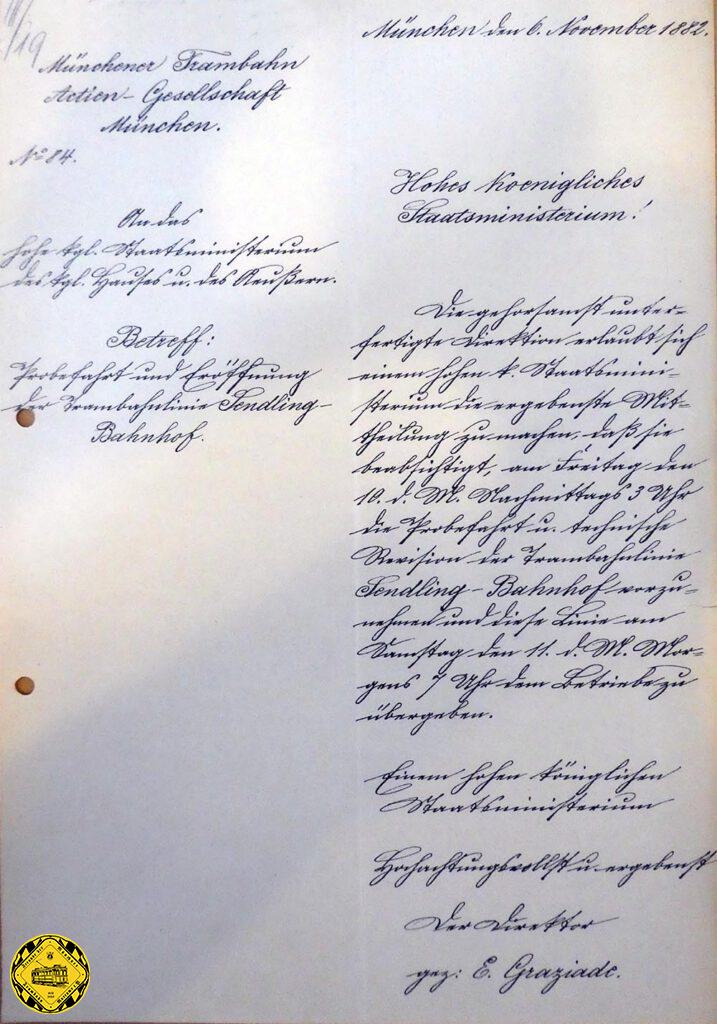 19
Münchener Trambahn
Actien-Gesellschaft
München.
No 84.
An das
hohe kgl. Staatsministerium
des kgl. Hauses u. des Aeußern.
Betreff:
Probefahrt und Eröffnung
der Trambahnlinie Sendling-
Bahnhof.
München den 6. November 1882.
Hohes Koenigliches
Staatsministerium!
Die gehorsamst unter-
fertigte Direktion erlaubt sich
einem hohen k. Staatsmini-
sterium die ergebenste Mit-
theilung zu machen, daß sie
beabsichtigt, am Freitag den
10. d. M. Nachmittags 3 Uhr
die Probefahrt u. technische
Revision der Trambahnlinie
Sendling-Bahnhof vorzu-
nehmen und diese Linie am
Samstag den 11. d. M. Mor-
gens 7 Uhr dem Betriebe zu
übergeben.
Einem hohen königlichen
Staatsministerium
Hochachtungsvollst u. ergebenst
Der Direktor
gez: E. Graziade.